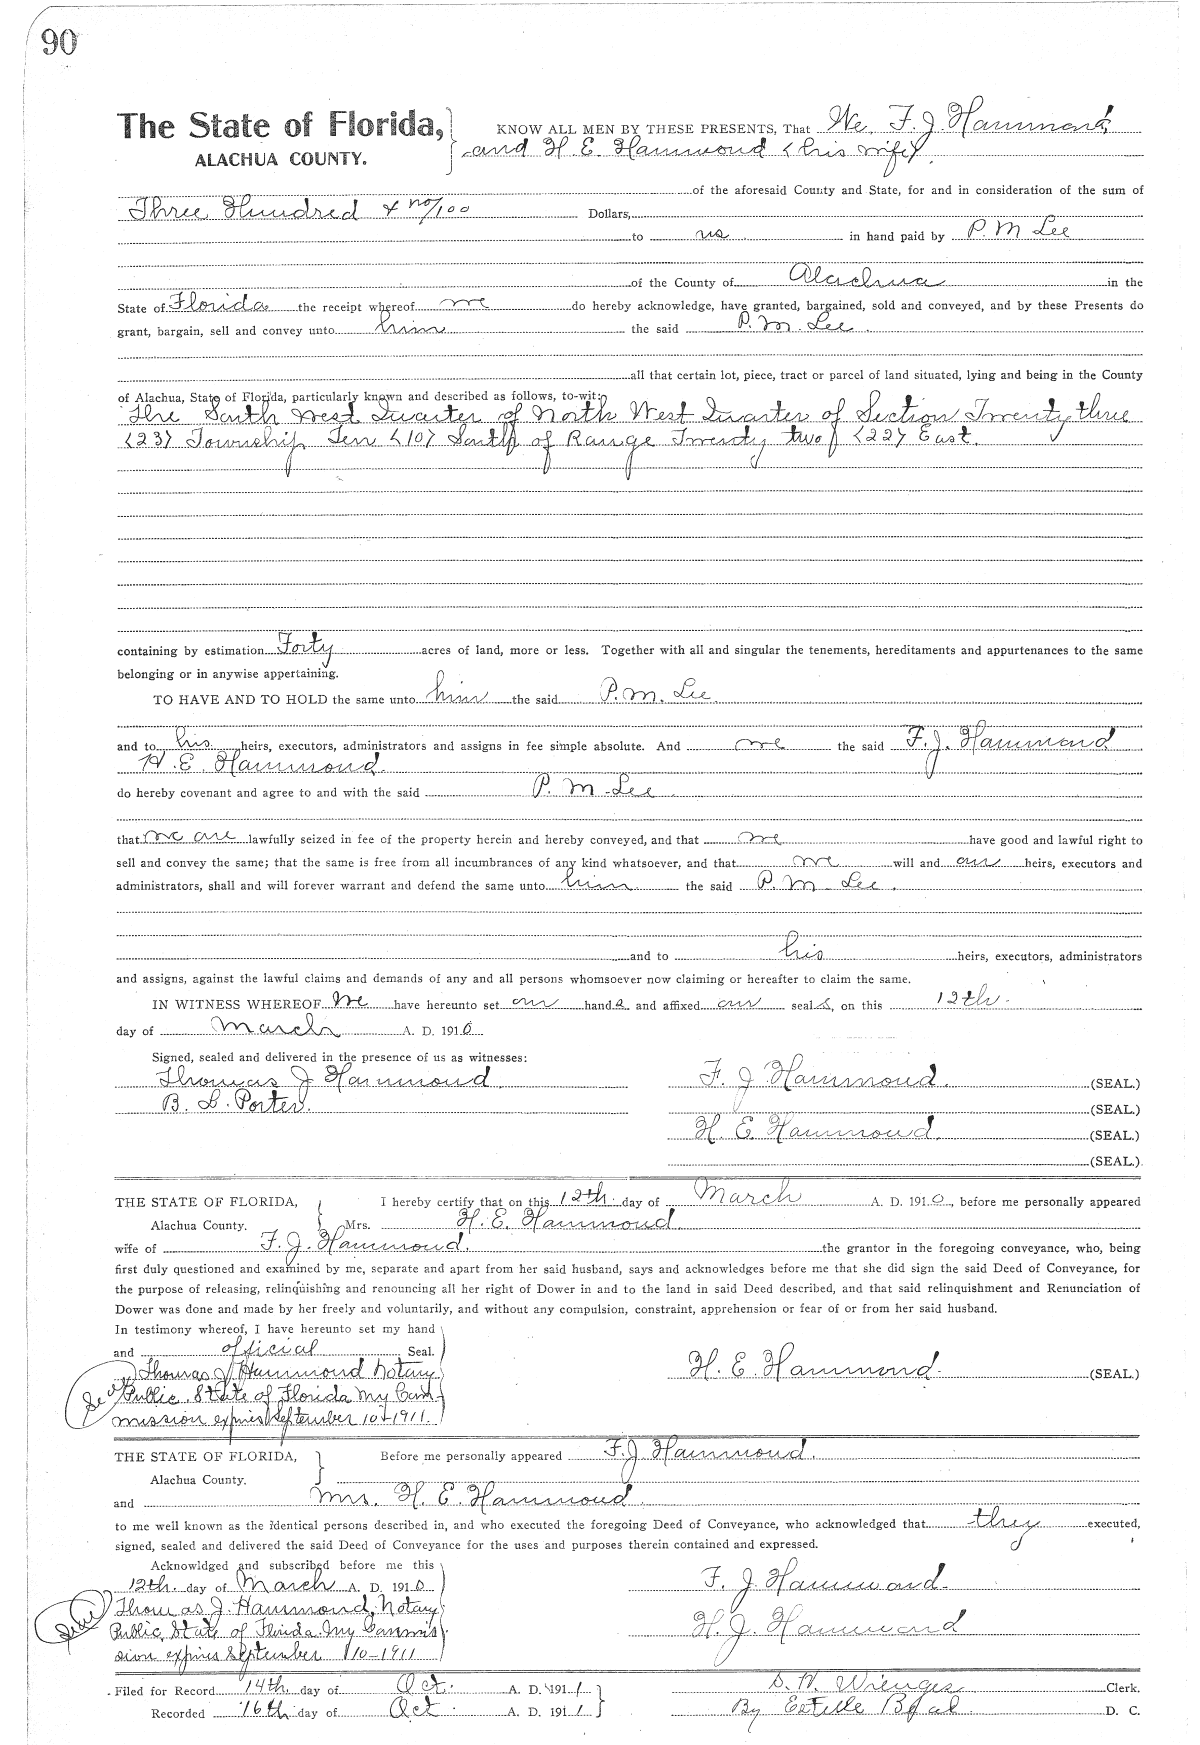 90
The State of Florida, KNOW ALL MEN BY THESE PRESENTS, That We, F. J. Hammond,
ALACHUA COUNTY. and H. E. Hammond (his wife)
of the aforesaid County and State, for and in consideration of the sum of
Three Hundred & no/100 Dollars,
to us in hand paid by P. M Lee
of the County of Alachua in the
State of Florida the receipt whereof we do hereby acknowledge, have granted, bargained, sold and conveyed, and by these Presents do
grant, bargain, sell and convey unto him the said P. M. Lee.
all that certain lot, piece, tract or parcel of land situated, lying and being in the County
of Alachua, State of Florida, particularly known and described as follows, to-wit:
The South West Quarter of North West Quarter of Section Twenty three
(23) Township Ten (10) South of Range Twenty two (22) East.
containing by estimation Forty acres of land, more or less. Together with all and singular the tenements, hereditaments and appurtenances to the same
belonging or in anywise appertaining.
TO HAVE AND TO HOLD the same unto him the said P. M. Lee
and to his heirs, executors, administrators and assigns in fee simple absolute. And we the said F. J. Hammond
H. E. Hammond
do hereby covenant and agree to and with the said P. M Lee.
that we are lawfully seized in fee of the property herein and hereby conveyed, and that we have good and lawful right to
sell and convey the same; that the same is free from all incumbrances of any kind whatsoever, and that we will and our heirs, executors and
administrators, shall and will forever warrant and defend the same unto him the said P. M. Lee.
and to his heirs, executors, administrators
and assigns, against the lawful claims and demands of any and all persons whomsoever now claiming or hereafter to claim the same.
IN WITNESS WHEREOF We have hereunto set our hands and affixed our seals, on this 12th.
day of March A. D. 1910
Signed, sealed and delivered in the presence of us as witnesses:
Thomas J Hammond F. J Hammond. (SEAL.)
B. L. Porter. (SEAL.)
H. E Hammond. (SEAL.)
(SEAL.)
THE STATE OF FLORIDA, I hereby certify that on this 12th. day of March A. D. 1910, before me personally appeared
Alachua County. Mrs. H. E. Hammond
wife of F. J. Hammond. the grantor in the foregoing conveyance, who, being
first duly questioned and examined by me, separate and apart from her said husband, says and acknowledges before me that she did sign the said Deed of Conveyance, for
the purpose of releasing, relinquishing and renouncing all her right of Dower in and to the land in said Deed described, and that said relinquishment and Renunciation of
Dower was done and made by her freely and voluntarily, and without any compulsion, constraint, apprehension or fear of or from her said husband.
In testimony whereof, I have hereunto set my hand
and official Seal.
Thomas J Hammond Notary H. E Hammond. (SEAL)
Seal Public. State of Florida My Com-
mission expires September 10-1911.
THE STATE OF FLORIDA, Before me personally appeared F. J Hammond.
Alachua County.
and Mrs. H. E. Hammond.
to me well known as the identical persons described in, and who executed the foregoing Deed of Conveyance, who acknowledged that they executed,
signed, sealed and delivered the said Deed of Conveyance for the uses and purposes therein contained and expressed.
Acknowldged and subscribed before me this
12th. day of March A. D. 1910 F. J. Hammond.
Seal Thomas J. Hammond, Notary
Public, State of Florida. My Commis H. J. Hammond
sion expires September 10-1911
Filed for Record 14th. day of Oct. A. D. 1911 S. H. Wienges Clerk.
Recorded 16th day of Oct A. D. 1911 By Estelle D. C.